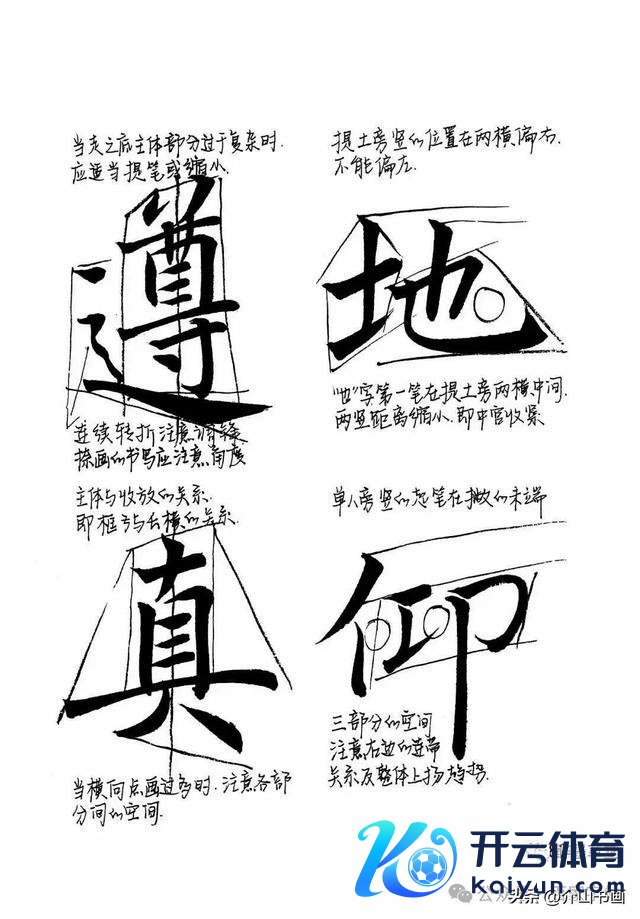 当走之底主体部分过于复杂时.
应适当提笔或缩小.
遵
连续转折注意调锋
捺画的书写应注意角度
提土旁竖的位置在两横偏右.
不能偏左.
地
"也"字第一笔在提土旁两横中间.
两竖距离缩小.即中宫收紧
主体与收放的关系.
即框与长横的关系.
真
当横向点画过多时.注意各部
分间的空间.
单人旁竖的起笔在撇的末端
仰
三部分的空间
注意右边的连带
关系及整体上扬趋势.
开云体育
kaiyun.com
头条@介山书画